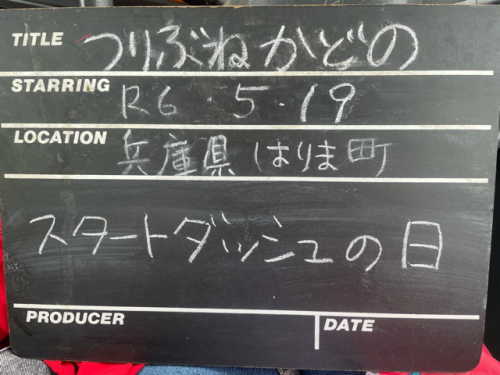 TITLE つりぶねかどの
STARRING R6.5.19
LOCATION 兵庫県はりま町
スタートダッシュの日
PRODUCER DATE